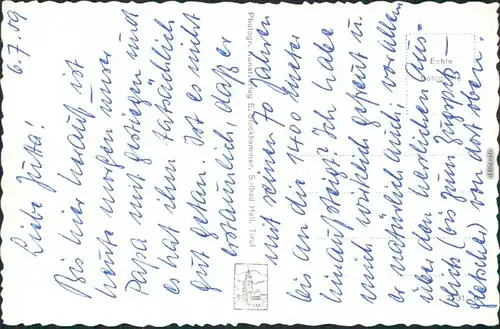 6.7.59
Liebe Jutta!
Bis hier herauf ist
heute morgen unser
Papa mit gestiegen und
es hat ihm tatsächlich
gut getan. Ist es nicht
erstaunlich, daß er
mit seinen 70 Jahren
bis an die 1400 Meter
hinaufsteigt? Ich habe
mich wirklich gefreut u.
er natürlich auch, vor allem
über den herrlichen Aus-
blick (bis zum Zugspitz-
gletscher) von dort oben.
Photogr. Kunstverlag E. Stockhammer, Solbad Hall, Tirol
Echte